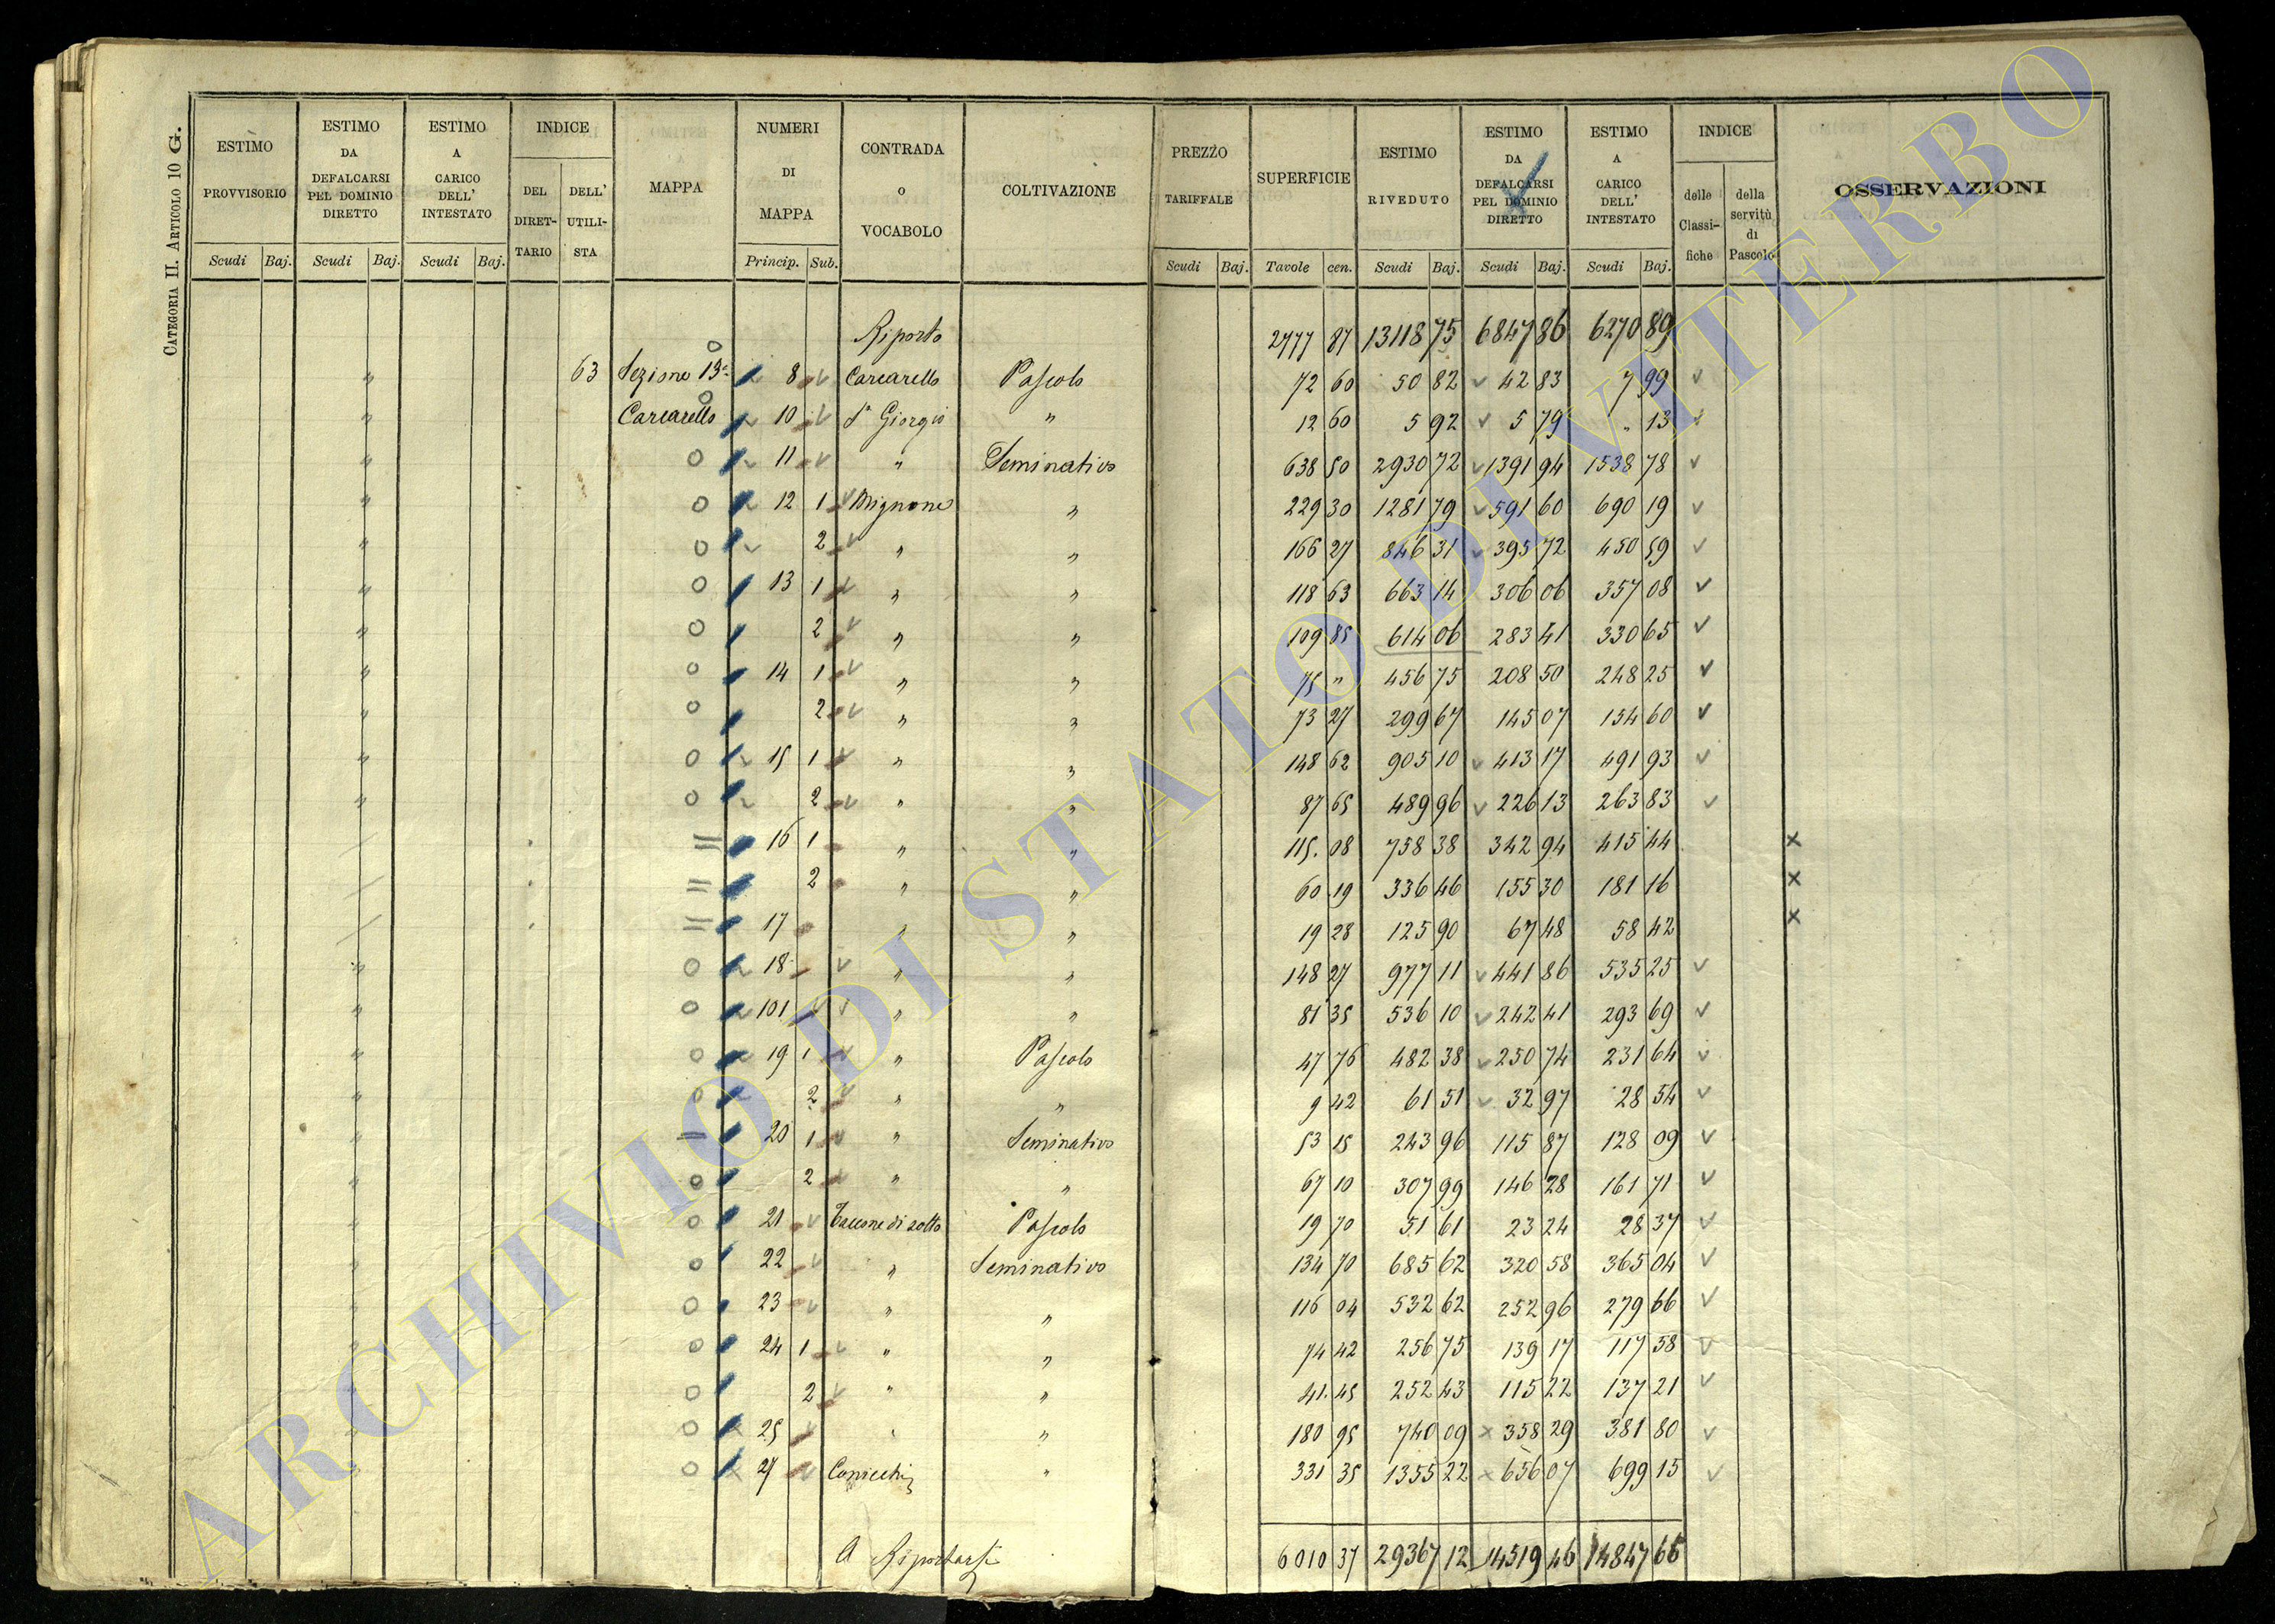 CATEGORIA II. ARTICOLO 10 G.
ESTIMO PROVVISORIO Scudi Baj.
ESTIMO DA DEFALCARSI PEL DOMINIO DIRETTO Scudi Baj.
ESTIMO A CARICO DELL' INTESTATO Scudi Baj.
INDICE DEL DIRETTARIO DELL' UTILISTA
MAPPA
NUMERI DI MAPPA Princip. Sub.
CONTRADA o VOCABOLO
COLTIVAZIONE
PREZZO TARIFFALE Scudi Baj.
SUPERFICIE Tavole cen.
ESTIMO RIVEDUTO Scudi Baj.
ESTIMO DA DEFALCARSI PEL DOMINIO DIRETTO Scudi Baj.
ESTIMO A CARICO DELL' INTESTATO Scudi Baj.
INDICE delle Classifiche della servitù di Pascolo
OSSERVAZIONI
Riporto 2777 87 13118 75 6847 86 6270 89
" 63 Sezione 13a 8 Carcarello Pascolo 72 60 50 82 42 83 7 99
" Carcarello 10 S. Giorgio " 12 60 5 92 5 79 " 13
" 11 " Seminativo 638 50 2930 72 1391 94 1538 78
" 12 1 Mignone " 229 30 1281 79 591 60 690 19
" 2 " " 166 27 846 31 395 72 450 59
" 13 1 " " 118 63 663 14 306 06 357 08
" 2 " " 109 85 614 06 283 41 330 65
" 14 1 " " 75 " 456 75 208 50 248 25
" 2 " " 73 27 299 67 145 07 154 60
" 15 1 " " 148 62 905 10 413 17 491 93
" 2 " " 87 65 489 96 226 13 263 83
16 1 " " 115. 08 758 38 342 94 415 44 x
2 " " 60 19 336 46 155 30 181 16 x
17 " " 19 28 125 90 67 48 58 42 x
" 18 " " 148 27 977 11 441 86 535 25
" 101 " " 81 35 536 10 242 41 293 69
" 19 1 " Pascolo 47 76 482 38 250 74 231 64
" 2 " " 9 42 61 51 32 97 28 54
" 20 1 " Seminativo 53 15 243 96 115 87 128 09
" 2 " " 67 10 307 99 146 28 161 71
" 21 Taccone di sotto Pascolo 19 70 51 61 23 24 28 37
" 22 " Seminativo 134 70 685 62 320 58 365 04
" 23 " " 116 04 532 62 252 96 279 66
" 24 1 " " 74 42 256 75 139 17 117 58
" 2 " " 41. 45 252 43 115 22 137 21
" 25 " " 180 95 740 09 358 29 381 80
" 27 Conicchi " 331 35 1355 22 656 07 699 15
A Riportarsi 6010 37 29367 12 14519 46 14847 66
ARCHIVIO DI STATO DI VITERBO